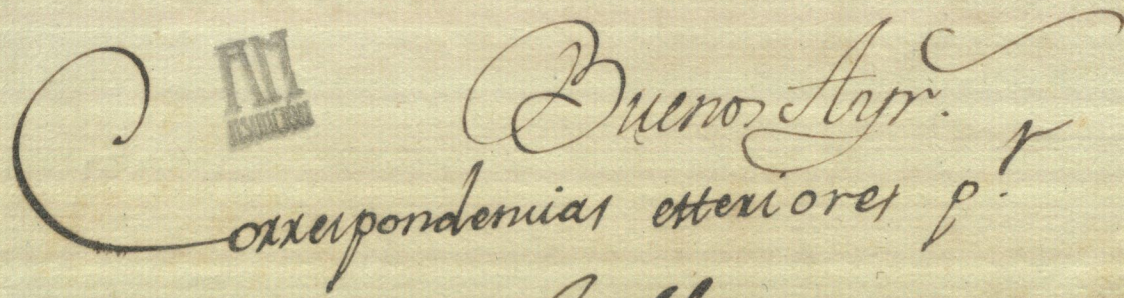 Buenos Ayr.
Correspondencias esteriores p.r